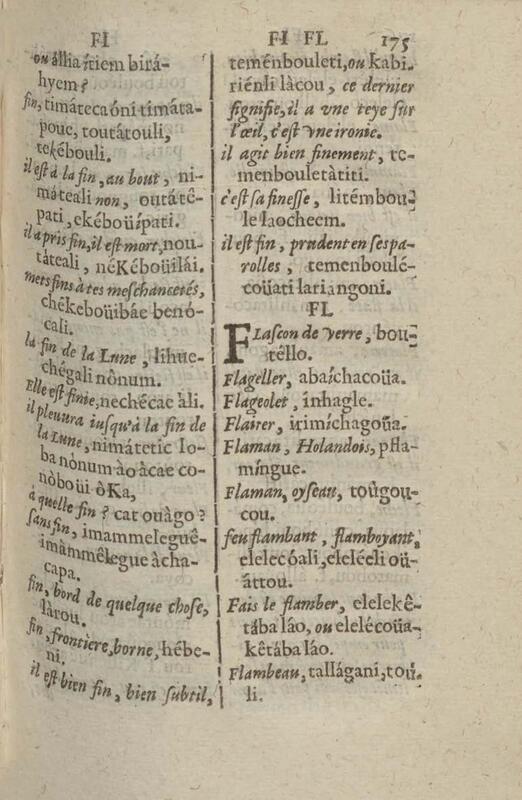 FI
FI FL 175
ou állia ítiem birá-
hyem?
fin, timáteca óni timáta-
pouc, toutátouli,
tekébouli.
il est à la fin, au bout, ni-
máteali non, outátê-
pati, ekéboüípati.
il a pris fin, il est mort, nou-
táteali, néKéboüilái.
mets fins à tes meschancetés,
chékeboüibáe benó-
cali.
la fin de la Lune, lihue-
chégali nônum.
Elle est finie, nechécae áli.
il pleuura iusqu'à la fin de
la Lune, nimátetic Io-
ba nônum ào àcae co-
nòboüi òKa,
à quelle fin? cat ouàgo?
sans fin, imammeleguê-
imàmmêlegue àcha-
capa.
fin, bord de quelque chose,
làrou.
fin, frontiere, borne, hébe-
ni.
il est bien fin, bien subtil,
teménbouleti, ou kabi-
riénli làcou, ce dernier
signifie, il a vne teye sur
l'œil, c'est vne ironie.
il agit bien finement, te-
menbouletàtiti.
c'est sa finesse, litémbou-
le laocheem.
il est fin, prudent en ses pa-
rolles, temenboulé-
coüati lariangoni.
FL
FLascon de verre, bou-
téllo.
Flageller, abaíchacoüa.
Flageolet, inhagle.
Flairer, irimíchagoüa.
Flaman, Holandois, pfla-
míngue.
Flaman, oyseau, toûgou-
cou.
feu flambant, flamboyant,
elelecóali, eleléeli oü-
áttou.
Fais le flamber, elelekê-
tába láo, ou elelécoüa-
kêtába láo.
Flambeau, tallágani, toü-
li.